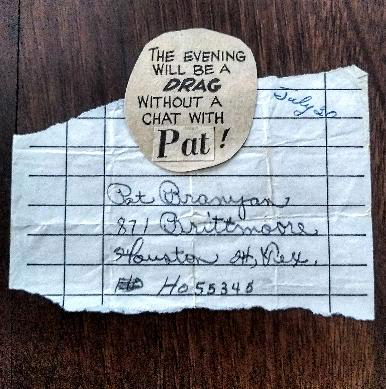 THE EVENING
WILL BE A
DRAG
WITHOUT A
CHAT WITH
Pat!
July 20
Pat Branyan
871 Brittmoore
Houston 24, Tex.
Ho 55345